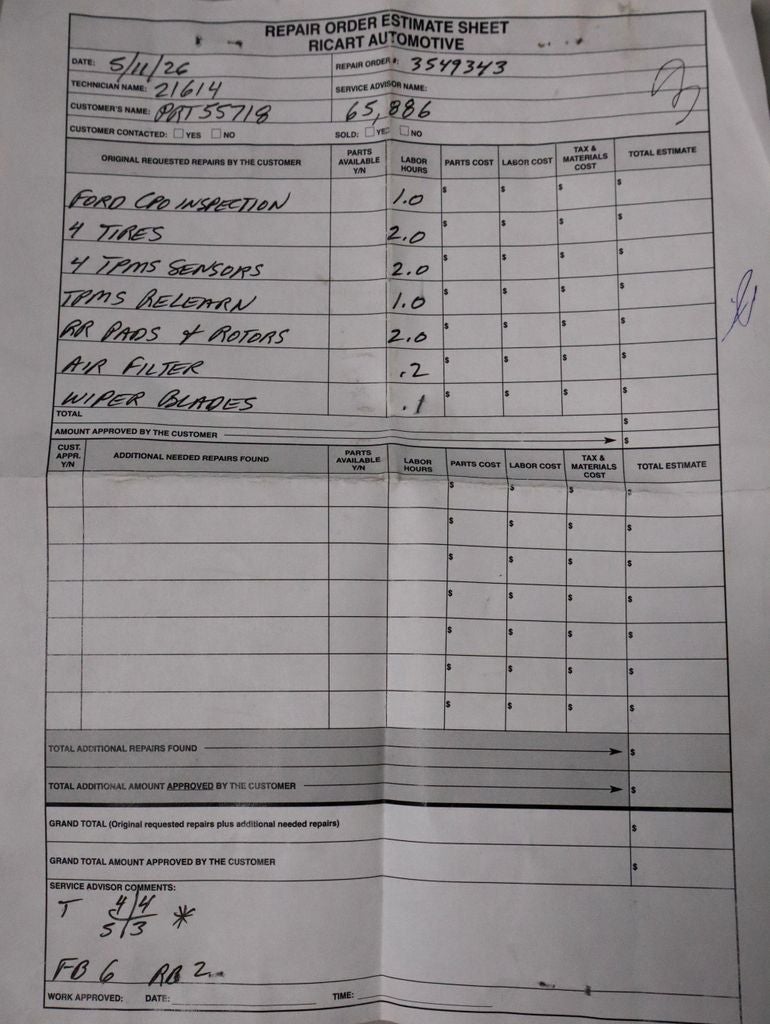 REPAIR ORDER ESTIMATE SHEET
RICART AUTOMOTIVE
DATE: 5/11/26 REPAIR ORDER #: 3549343
TECHNICIAN NAME: 21614 SERVICE ADVISOR NAME:
CUSTOMER'S NAME: PRT55718 65,886
CUSTOMER CONTACTED: YES NO SOLD: YES NO
ORIGINAL REQUESTED REPAIRS BY THE CUSTOMER PARTS AVAILABLE Y/N LABOR HOURS PARTS COST LABOR COST TAX & MATERIALS COST TOTAL ESTIMATE
FORD CPO INSPECTION 1.0 $ $ $ $
4 TIRES 2.0 $ $ $ $
4 TPMS SENSORS 2.0 $ $ $ $
TPMS RELEARN 1.0 $ $ $ $
RR PADS & ROTORS 2.0 $ $ $ $
AIR FILTER .2 $ $ $ $
WIPER BLADES .1 $ $ $ $
TOTAL $
AMOUNT APPROVED BY THE CUSTOMER $
CUST. APPR. Y/N ADDITIONAL NEEDED REPAIRS FOUND PARTS AVAILABLE Y/N LABOR HOURS PARTS COST LABOR COST TAX & MATERIALS COST TOTAL ESTIMATE
$ $ $ $
$ $ $ $
$ $ $ $
$ $ $ $
$ $ $ $
$ $ $ $
$ $ $ $
TOTAL ADDITIONAL REPAIRS FOUND $
TOTAL ADDITIONAL AMOUNT APPROVED BY THE CUSTOMER $
GRAND TOTAL (Original requested repairs plus additional needed repairs) $
GRAND TOTAL AMOUNT APPROVED BY THE CUSTOMER $
SERVICE ADVISOR COMMENTS:
T 4/4 *
5/3
FB 6 RB 2
WORK APPROVED: DATE: TIME: